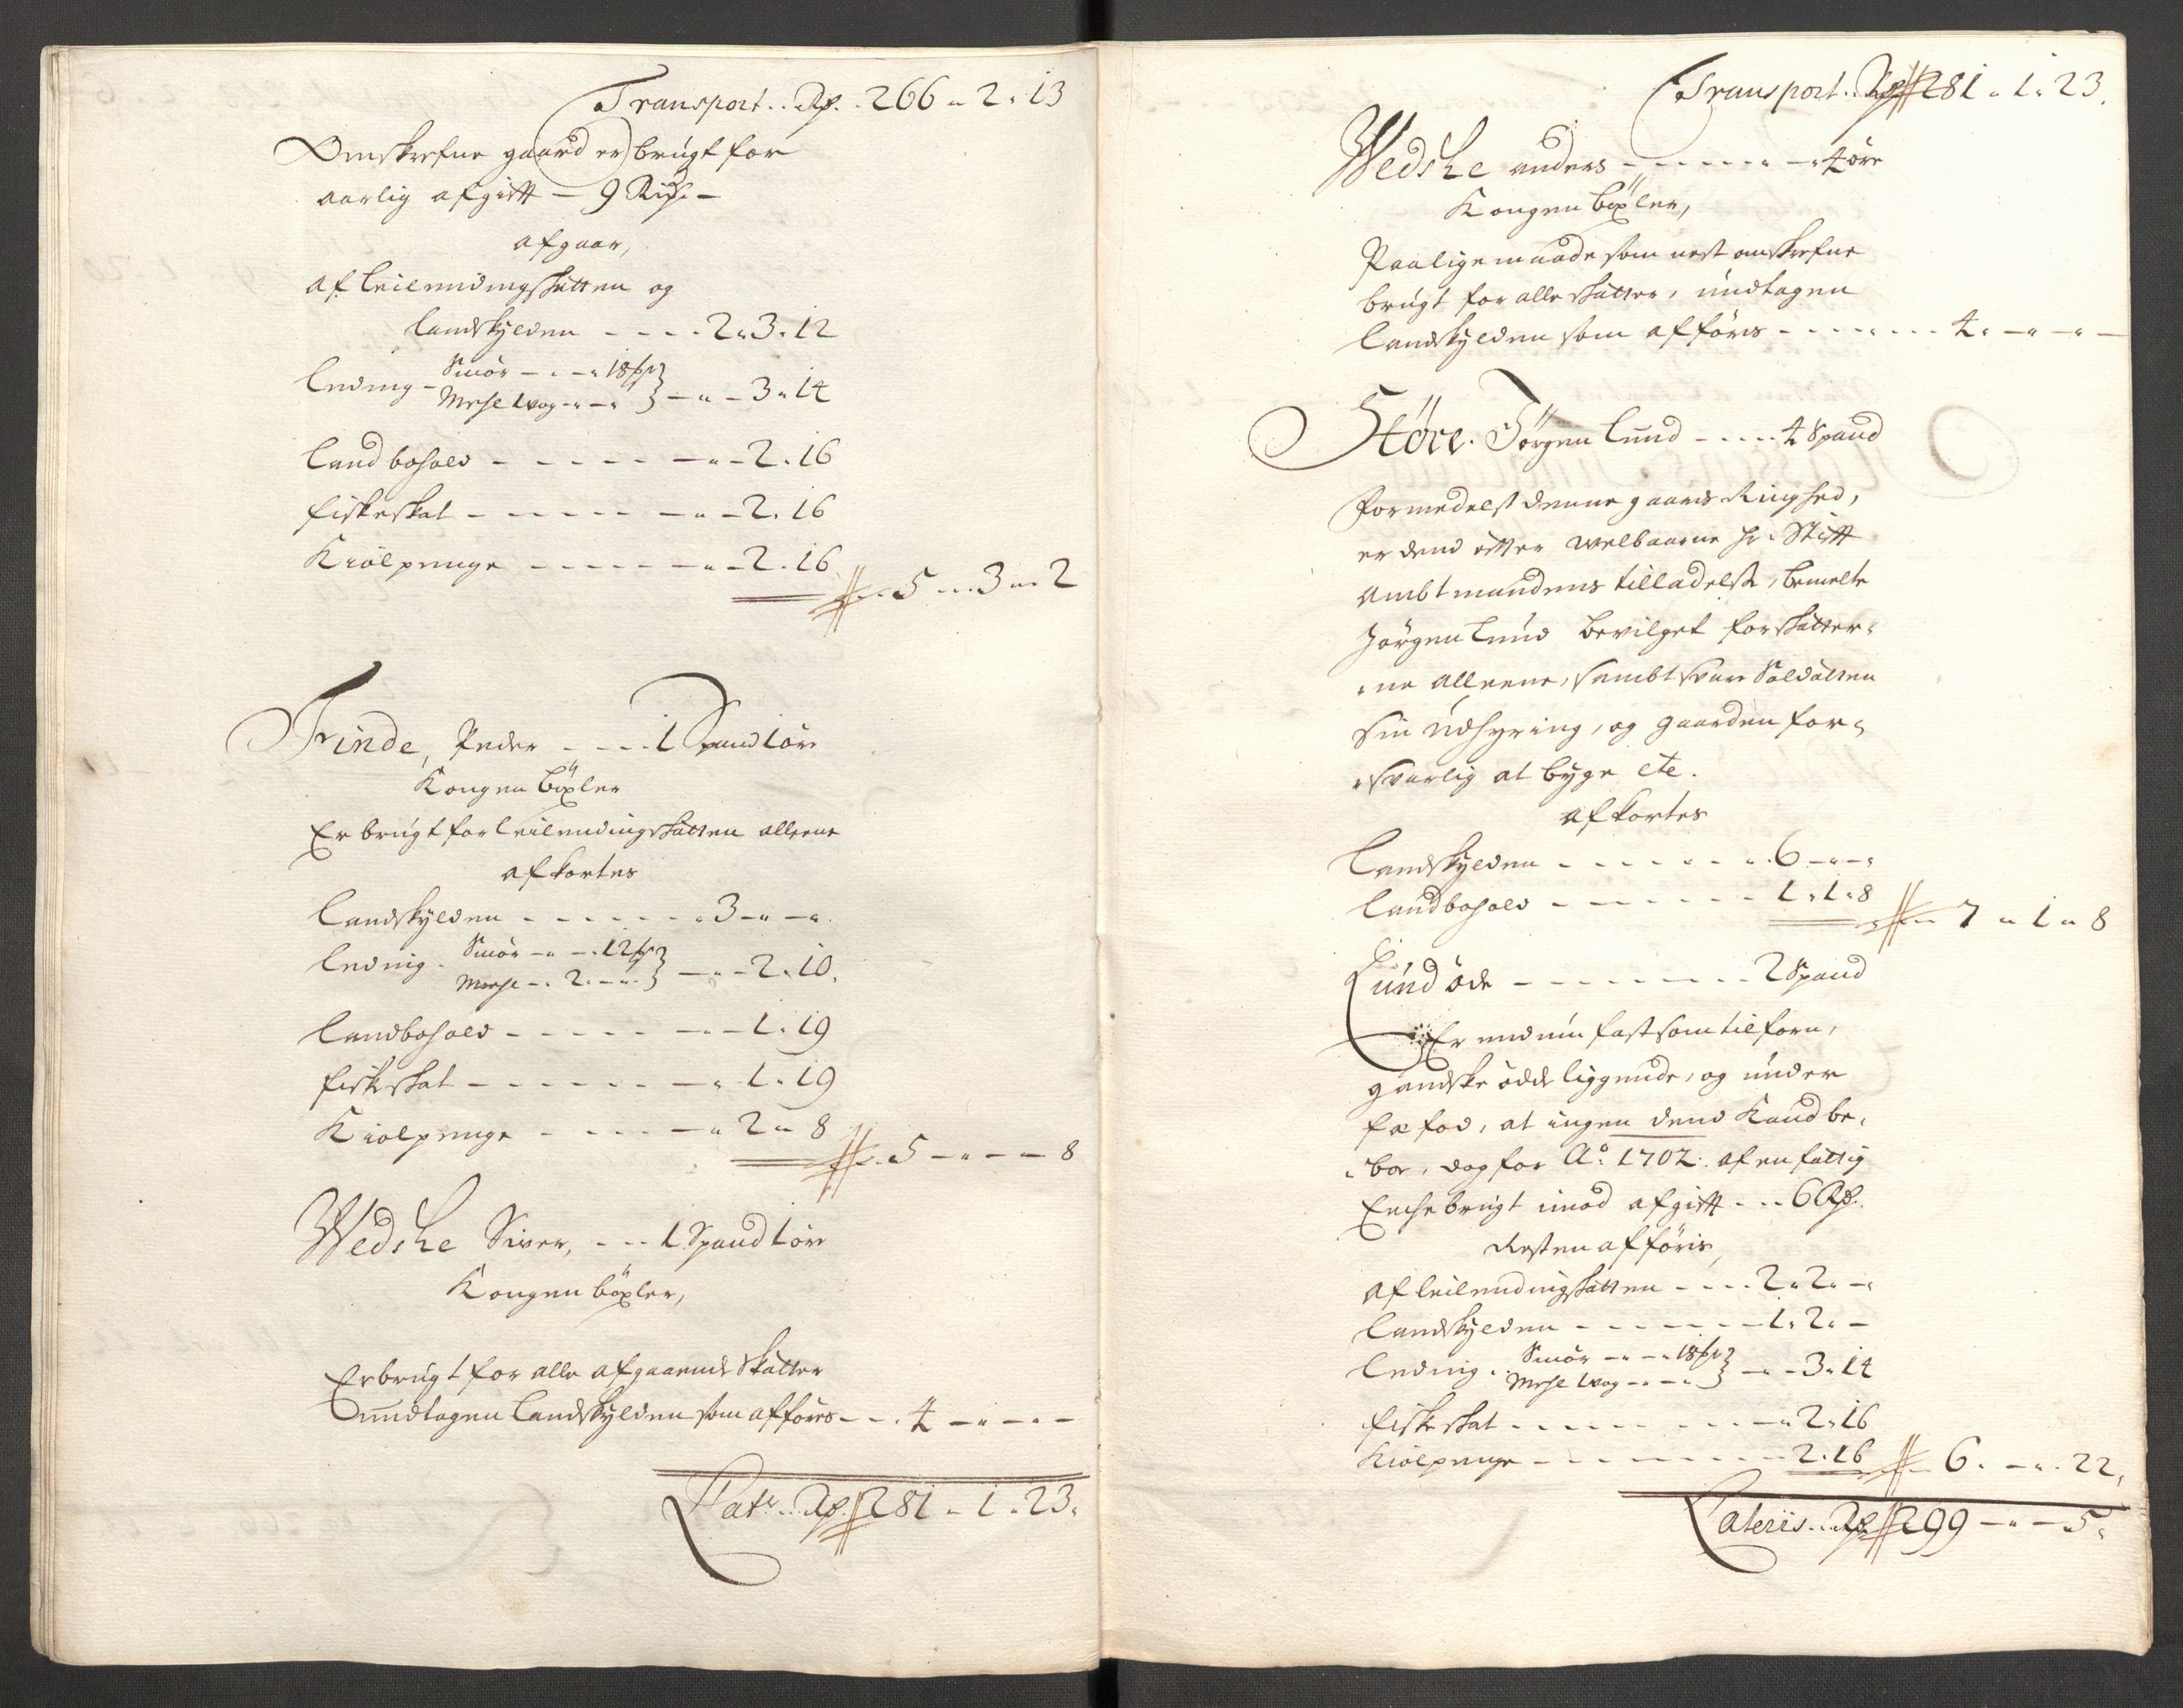 Transport.. Rd. 266 - 2 - 13
Omskrefne gaard er brugt for
aarlig afgifft - 9 Rixd. -
afgaar,
af leilendingsskatten og
landskylden - - - - 2 - 3 - 12
leding - Smör - - - 18 pd
Meehl 1 wog - - - } - - - 3 - 14
landbohold - - - - - - - 2 - 16
fiskeskat - - - - - - - 2 - 16
Kiölpenge - - - - - - - 2 - 16
5 - 3 - 2
Trinde, Peder - - - - 1 Spand 1 öre
Kongen böxler
Er brugt for leilendingsskatten alleene
afkortes
landskylden - - - - - - 3 - - -
leding - Smör - - - 12 pd
Meehl - - 2 - - - } - - - 2 - 10.
landbohold - - - - - - - 1 - 19
fiskeskat - - - - - - - 1 - 19
Kiölpenge - - - - - - 2 - 8
5 - - - 8
Wedshe Siver, - - - 1 Spand 1 öre
Kongen böxler,
Er brugt for alle afgaaende skatter
undtagen landskylden som afföres - - - 4 - - - -
Late. Rd. 281 - 1 - 23.
Transport.. Rd 281 - 1 - 23.
Wedshe anders - - - - - - - 4 öre
Kongen böxler,
Paa lige maade som nest omskrefne
brugt for alle skatter, undtagen
landskylden som afföris - - - - - - - 4 - - - -
Höre. Jörgen Lund - - - - 4 Spand
formedelst denne gaards Ringhed,
er dend efter welbaarne Hr. Stifft
ambtmandens tilladelse, bemelte
Jörgen Lund bevilget for skatter-
ne alleene, sambt svare Soldatten
sin udhyring, og gaarden for-
svarlig at byge etc.
afkortes
landskylden - - - - - - 6 - - -
landbohold - - - - - - - 1 - 1 - 8
7 - 1 - 8
Lund öde - - - - - - - - 2 Spand
Er end nu fast som tilforn,
gandske ödde liggende, og under
fæ fod, at ingen dend Kand be-
boe, dog for Ao. 1702. af en fattig
Enche brugt imod afgifft - - - 6 Rd.
Resten afföris,
af leilendingsskatten - - - - 2 - 2 - -
landskylden - - - - - - - 1 - 2 - -
leding - Smör - - - 18 pd
Mehl 1 wog - - - } - - - 3 - 14
fiskeskat - - - - - - - - 2 - 16
Kiölpenge - - - - - - - - 2 - 16
6. - - - 22,
Lateris.. Rd 299 - - - 5.